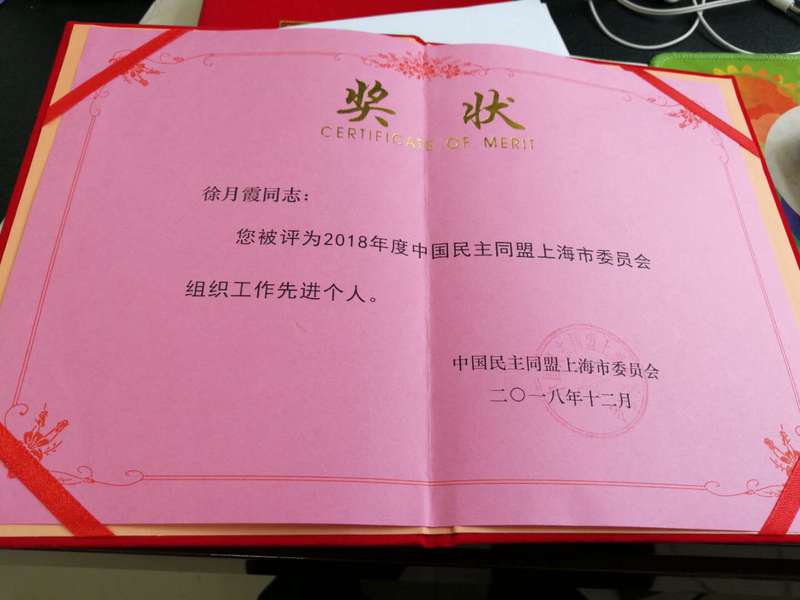 奖 状
CERTIFICATE OF MERIT
徐月霞同志：
您被评为2018年度中国民主同盟上海市委员会
组织工作先进个人。
中国民主同盟上海市委员会
二〇一八年十二月